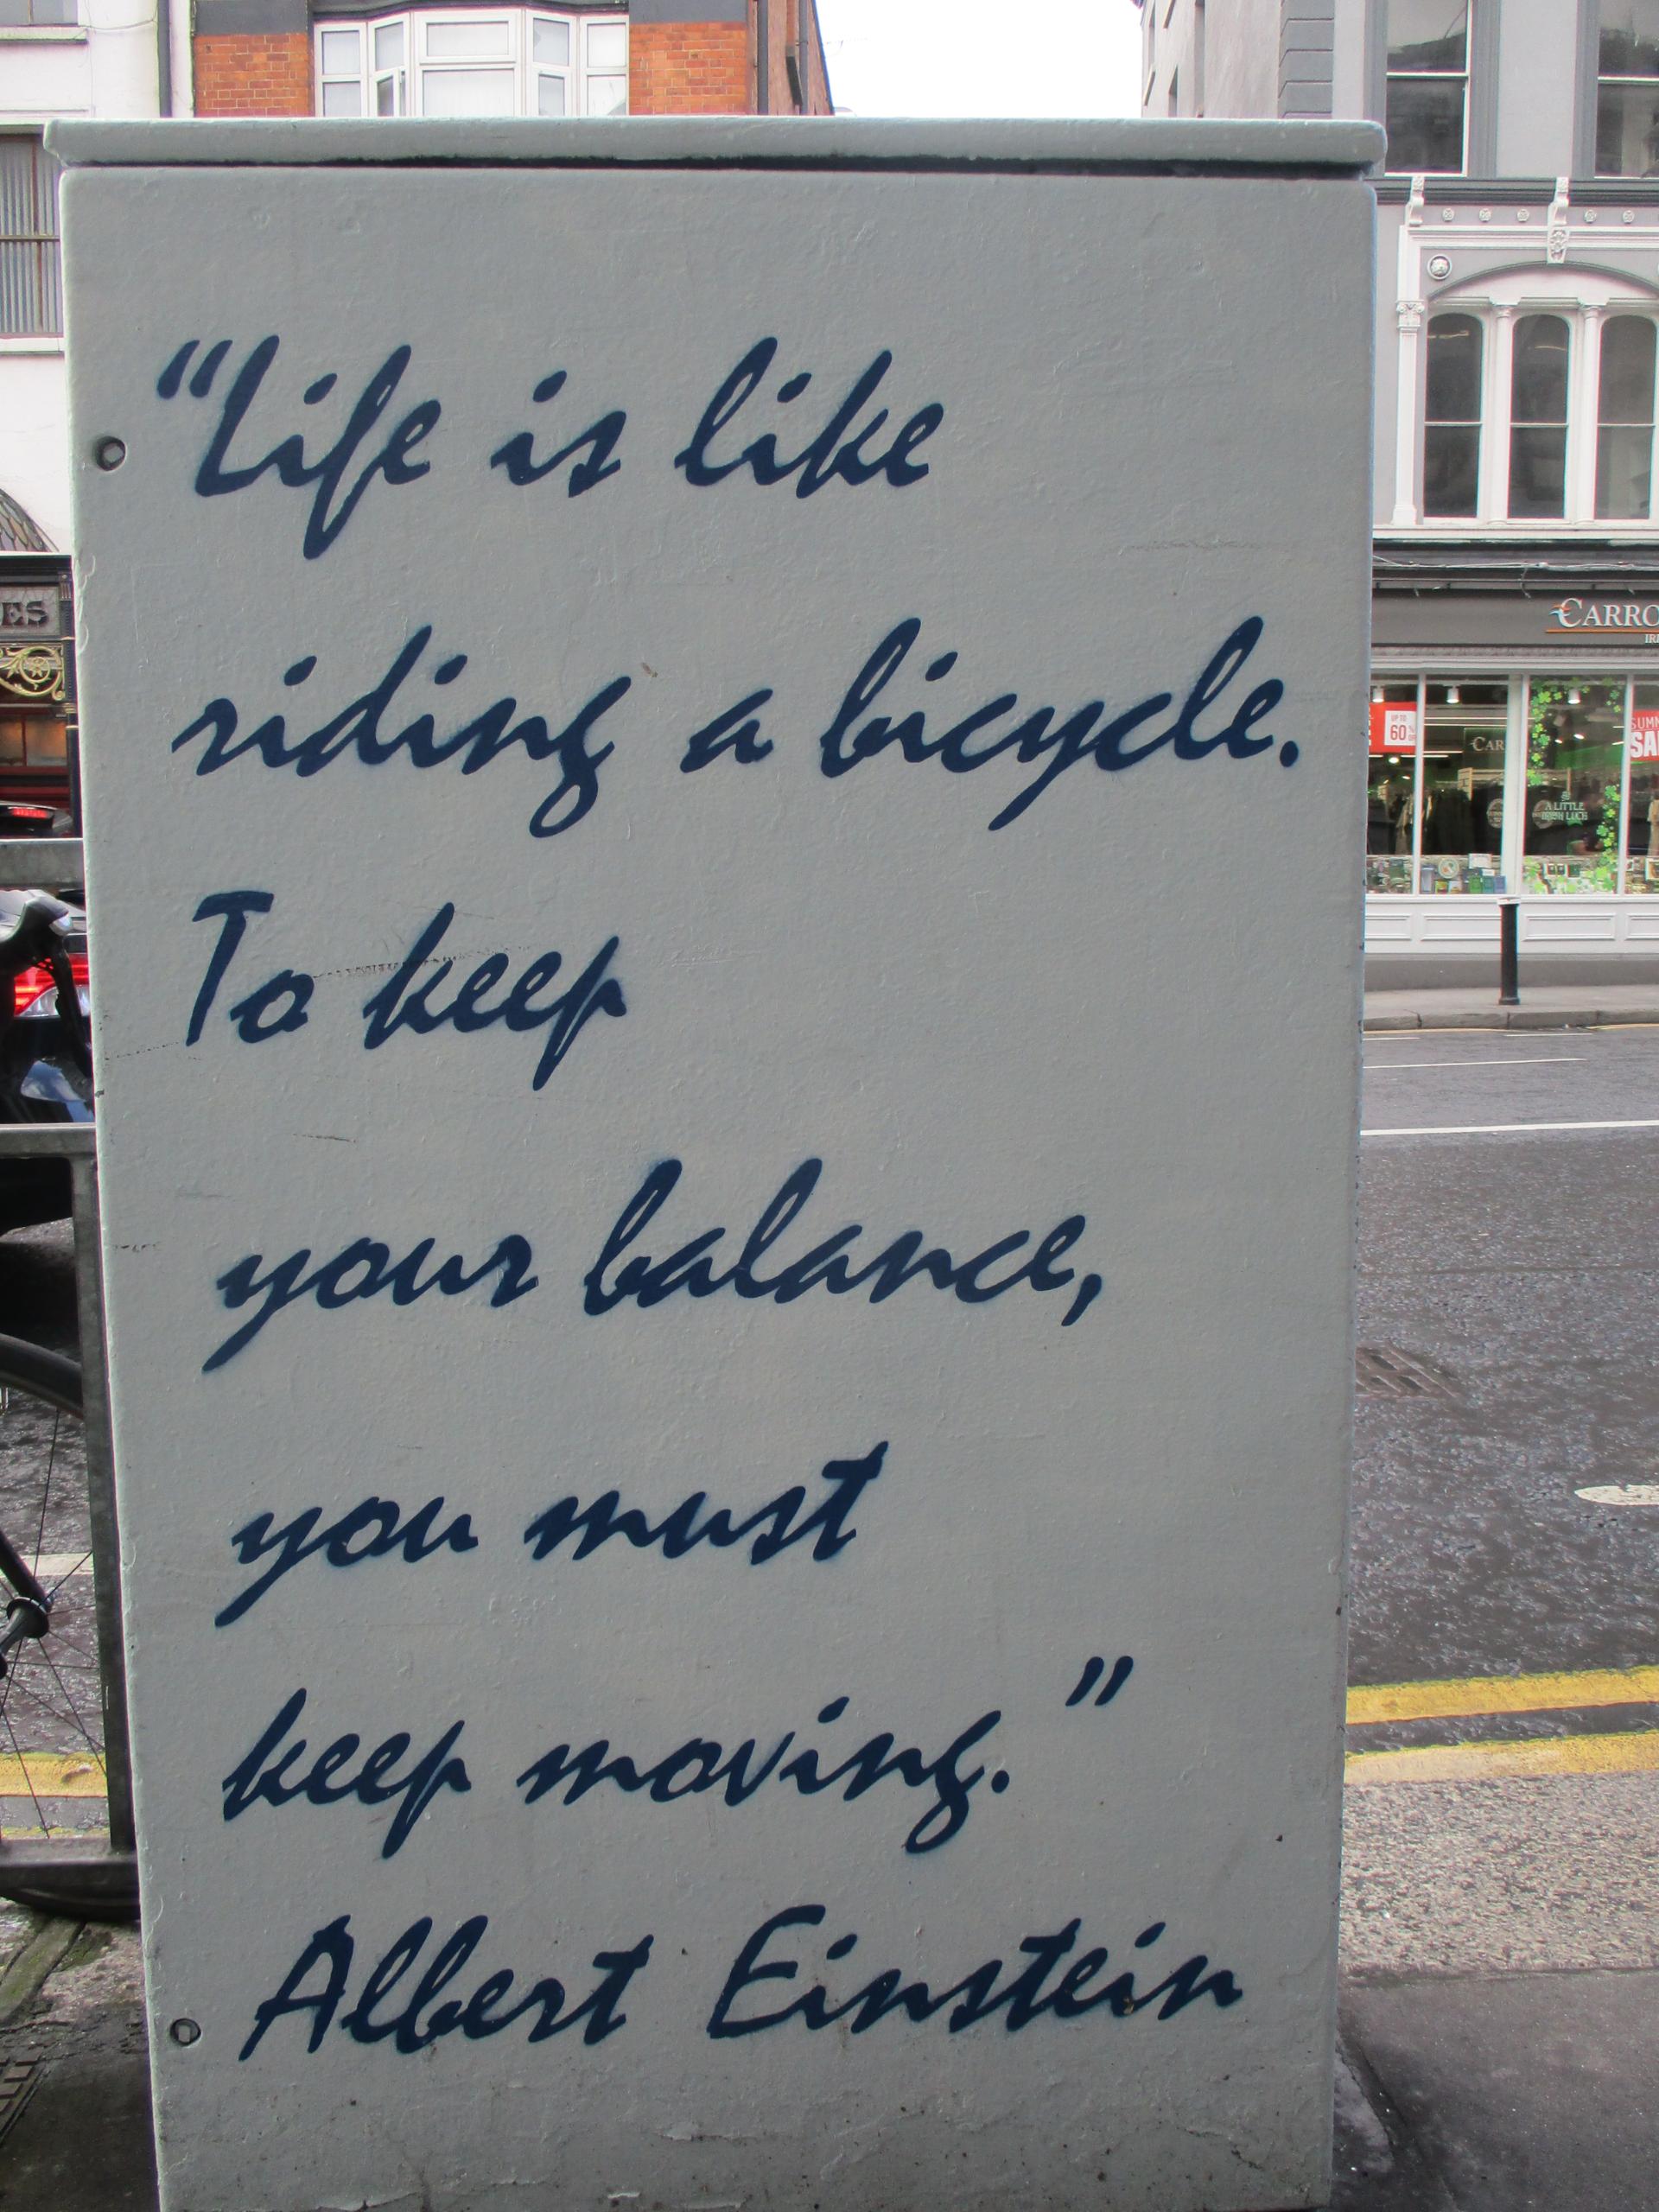 “Life is like
riding a bicycle.
To keep
your balance,
you must
keep moving.”
Albert Einstein
ES
CARRO
IR
UP TO
60%
CAR
SUMM
SA
A LITTLE
IRISH LUCK